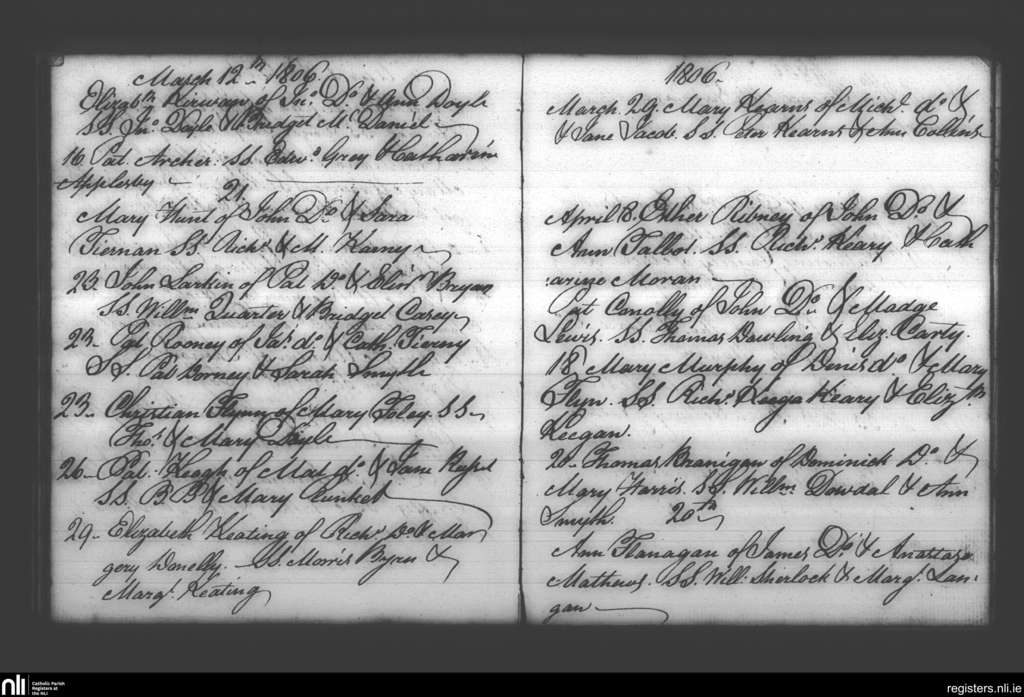 March 12th 1806.
Elizabth Kirwan of Jno. Do. & Ann Doyle
SS. Jno. Doyle & Bridget Mc. Daniel
16. Pat. Archer. SS. Edwd. Grey & Catharin
Applesby
21.
Mary Hunt of John Do. & Sara
Tiernan SS. Richd. & M. Karney
23. John Larkin of Pat Do. & Elinr. Bryan
SS. Willm. Quarter & Bridget Casey
23. Pat. Rooney of Jas. do. & Cath. Tierny
SS. Pat Dorney & Sarah Smyth
23. Christian Flynn of Mary Foley. SS.
Thos. & Mary Doyle
26. Pat. Keagh of Mat. do. & Jane
SS. B B & Mary Plunket
29. Elizabeth Keating of Richd. Do. & Mar
gery Donelly. SS. Morris Byrn &
Margt. Keating
1806.
March. 29. Mary Kearns of Michl. do. &
& Jane Jacob. SS. Peter Kearns & Ann Collins
April 8. Esther Ribney of John Do. &
Ann Talbot. SS. Richd. Keary & Cath
:arine Moran
Pat Conolly of John Do. & Madge
Lewis. SS. Thomas Dowling & Eliz. Carty.
18. Mary Murphy of Denis do. & Mary
Flyn. SS. Richd. Keary & Elizth.
Keegan.
20. Thomas Branigan of Dominick Do. &
Mary Harris. SS. Willm. Dowdal & Ann
Smyth. 20th
Ann Flanagan of James Do. & Anastasa
Mathews. SS. Will. Sherlock & Margt. Lan:
gan
nli
Catholic Parish
Registers at
the NLI
registers.nli.ie